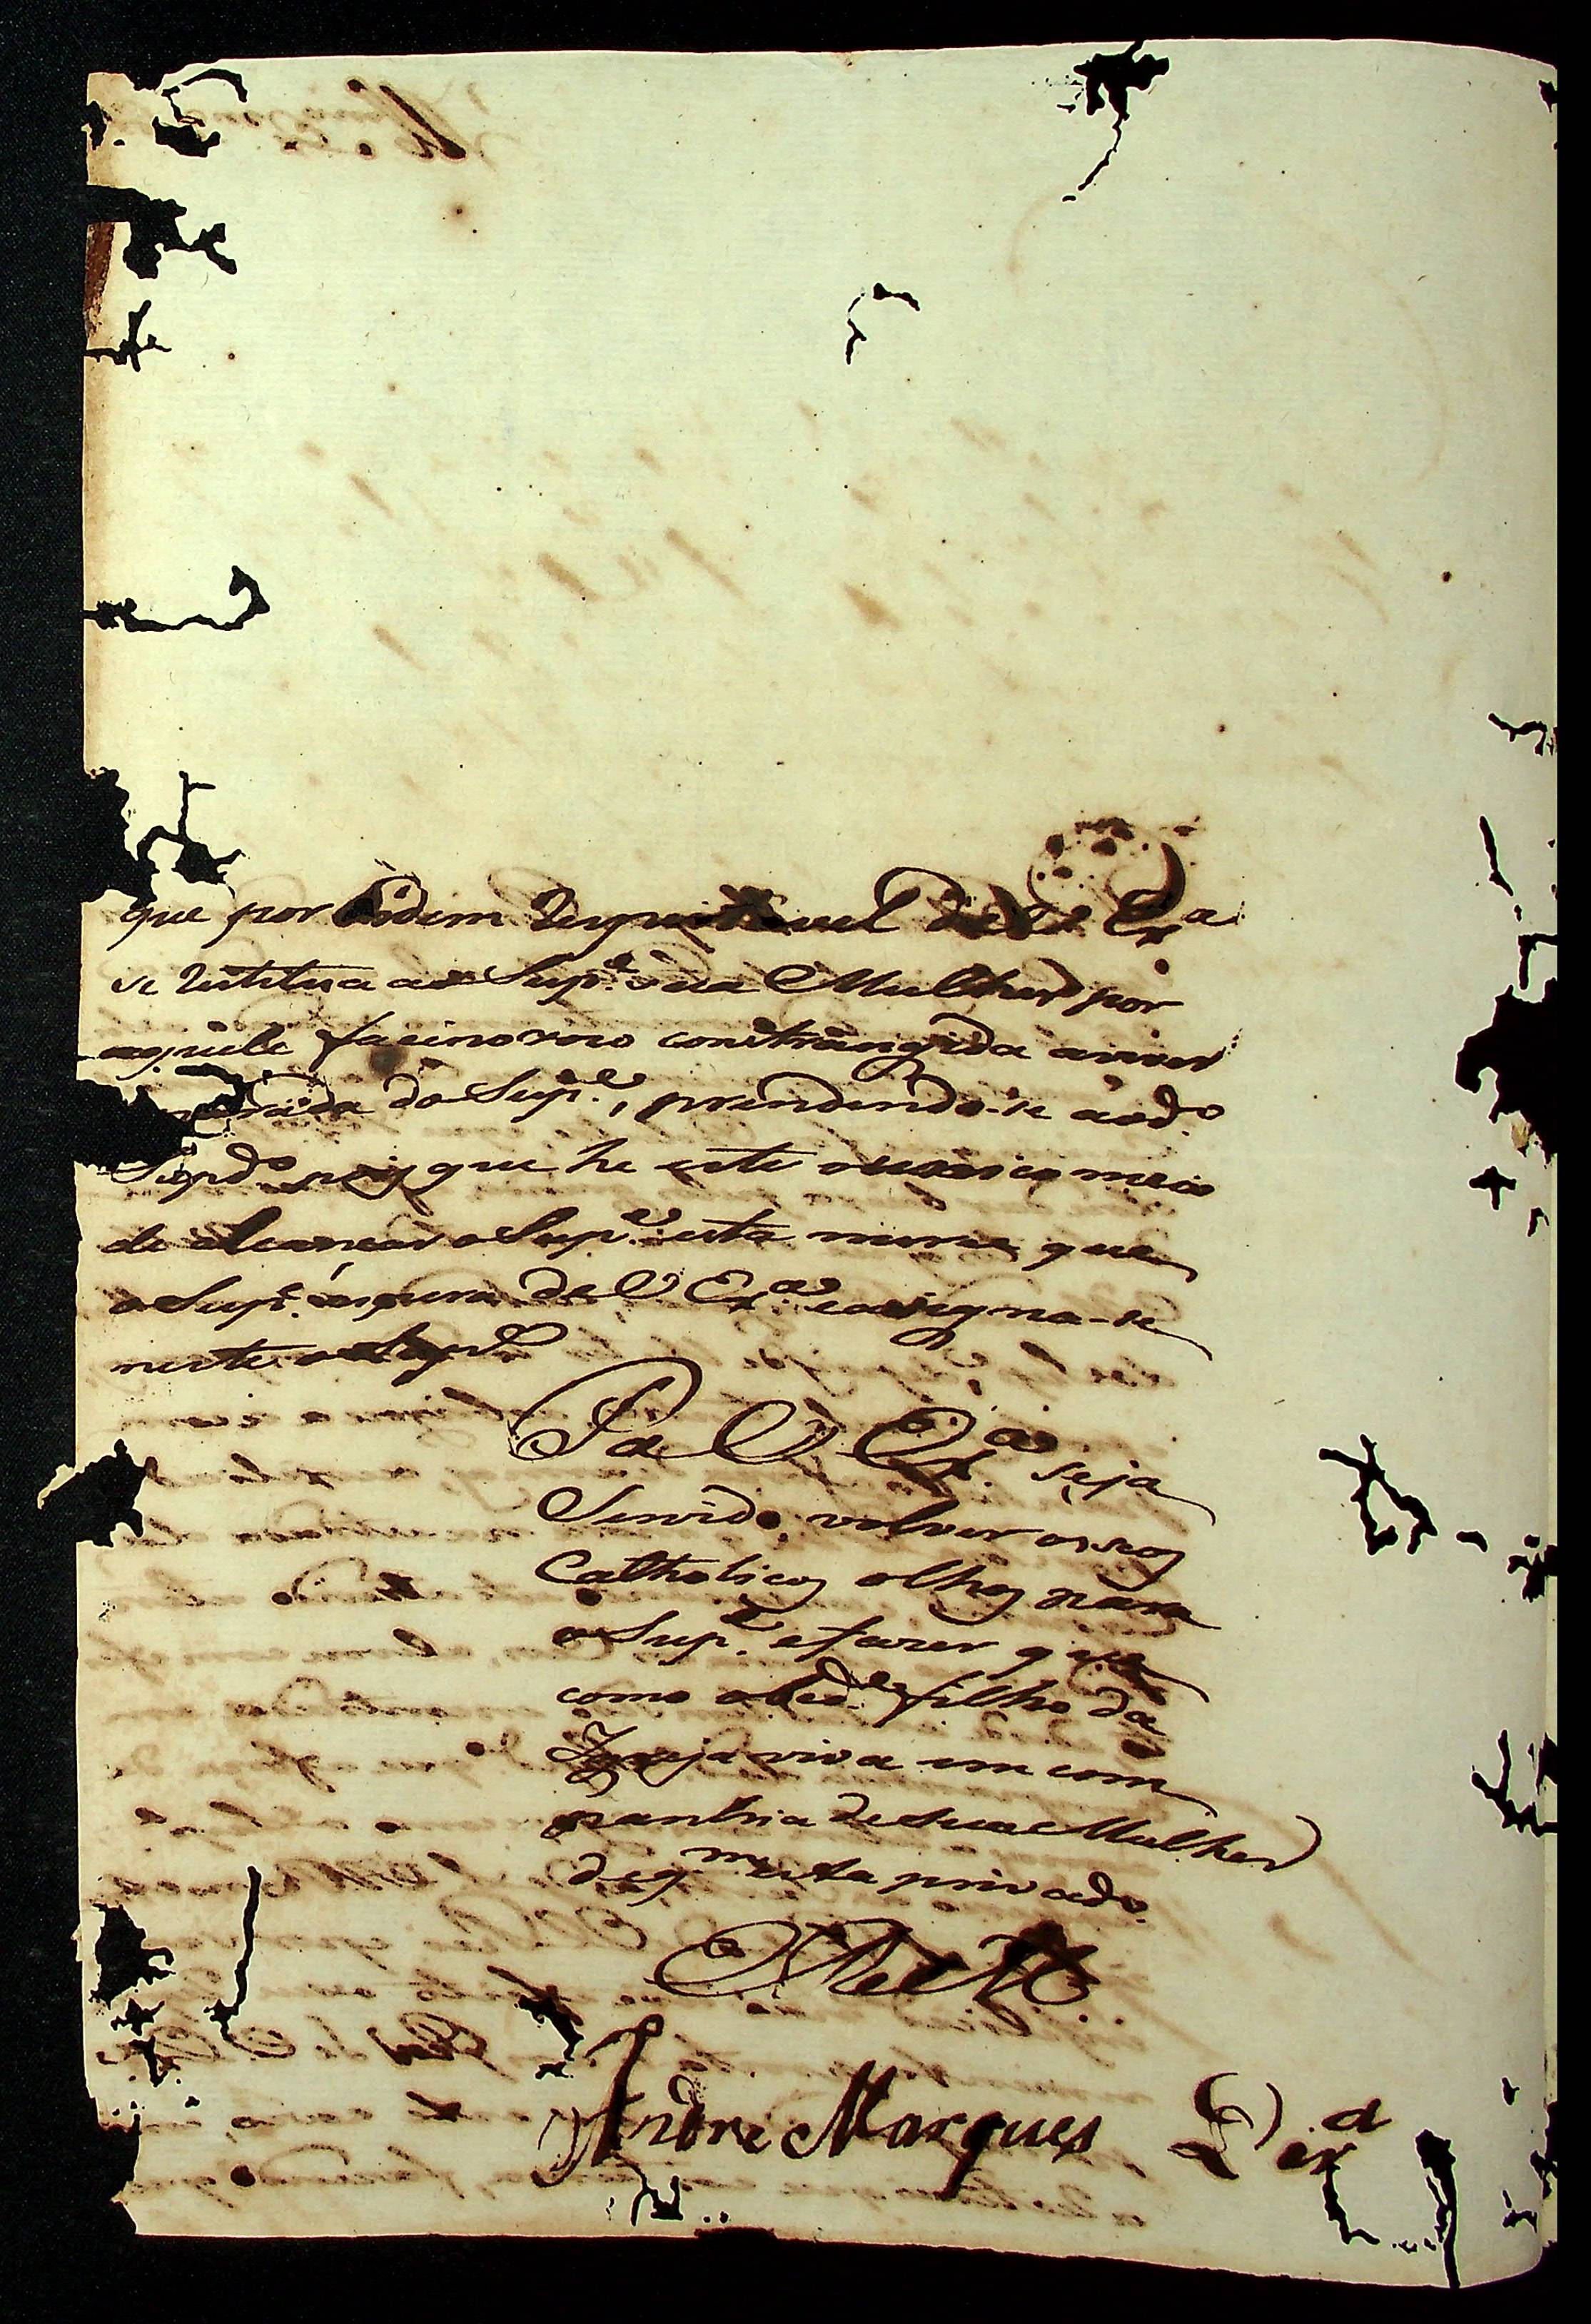 que por Ordem de V Exa
se restitua ao Supe. sua Mulher por
aquele facinoroso constrangida aviver
do Supe., prendendo-se aodo.
Supdo. pois que he este o unico meio
de alcancar o Supe. esta merce que
o Supe. espera de V Exa. e assigna-se
neste o Supe
P a V Exa. seja
Servido, volver os seos
Catholicos olhos para
o Supe. e fazer que
como obede. filho da
Igreja viva em com
panhia de sua Mulher
de qm. esta privado.
E R Mce
Andre Marques Perª